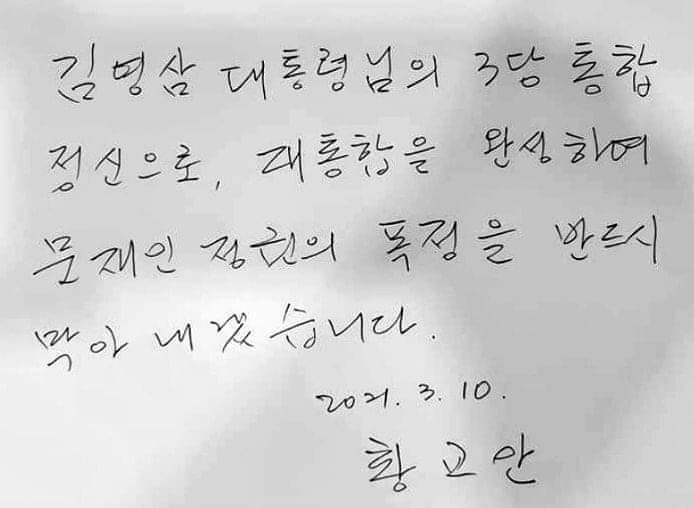 김영삼 대통령님의 3당 통합
정신으로, 대통합을 완성하여
문재인 정권의 폭정을 반드시
막아 내겠습니다.
2021. 3. 10.
황교안